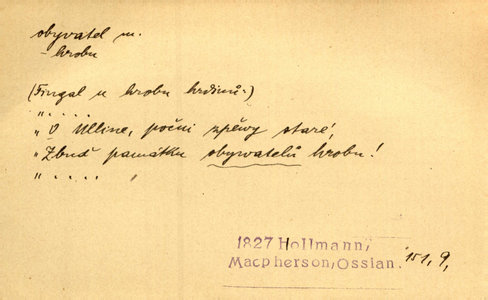 obyvatel m.
- hrobu
(Fingal u hrobu hrdinů:)
„ . . . .
„ Ó Ulline, počni zpěvy staré,
„Zbuď památku obyvatelů hrobu!
„ . . . . ,
1827 Hollmann,
Macpherson, Ossian. 151, 9,